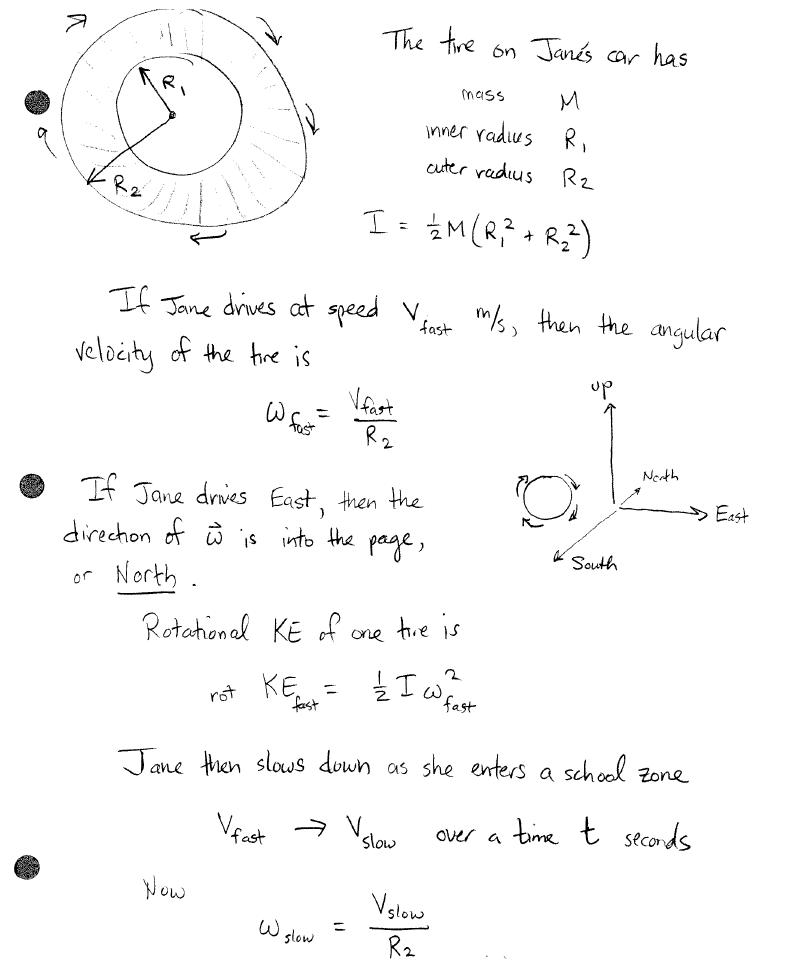 The tire on Jane's car has
mass M
inner radius R₁
outer radius R₂
R₁
R₂
I = ½M(R₁² + R₂²)
If Jane drives at speed V_fast m/s, then the angular
velocity of the tire is
ω_fast = V_fast / R₂
up
North
East
South
If Jane drives East, then the
direction of ω⃗ is into the page,
or North.
Rotational KE of one tire is
rot KE_fast = ½ I ω²_fast
Jane then slows down as she enters a school zone
V_fast → V_slow over a time t seconds
Now
ω_slow = V_slow / R₂